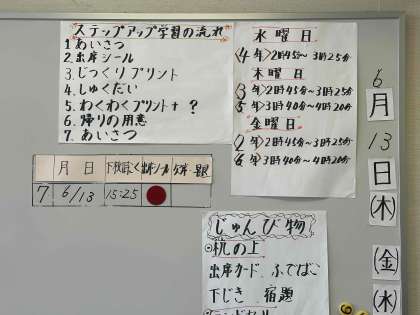 ステップアップ学習の流れ
1 あいさつ
2 出席シール
3 じっくりプリント
4 しゅくだい
5 わくわくプリント+?
6 帰りの用意
7. あいさつ
水曜日
〈4年〉2時45分〜3時25分
木曜日
〈3年〉2時45分〜3時25分
〈5年〉3時40分〜4時20分
金曜日
〈2年〉2時45分〜3時25分
〈6年〉3時40分〜4時20分
月 日
7 6/13 15:25
じゅんび物
机の上
出席カード、ふでばこ
下じき 宿題
6
月
13
日
(木)
(金)
(水)